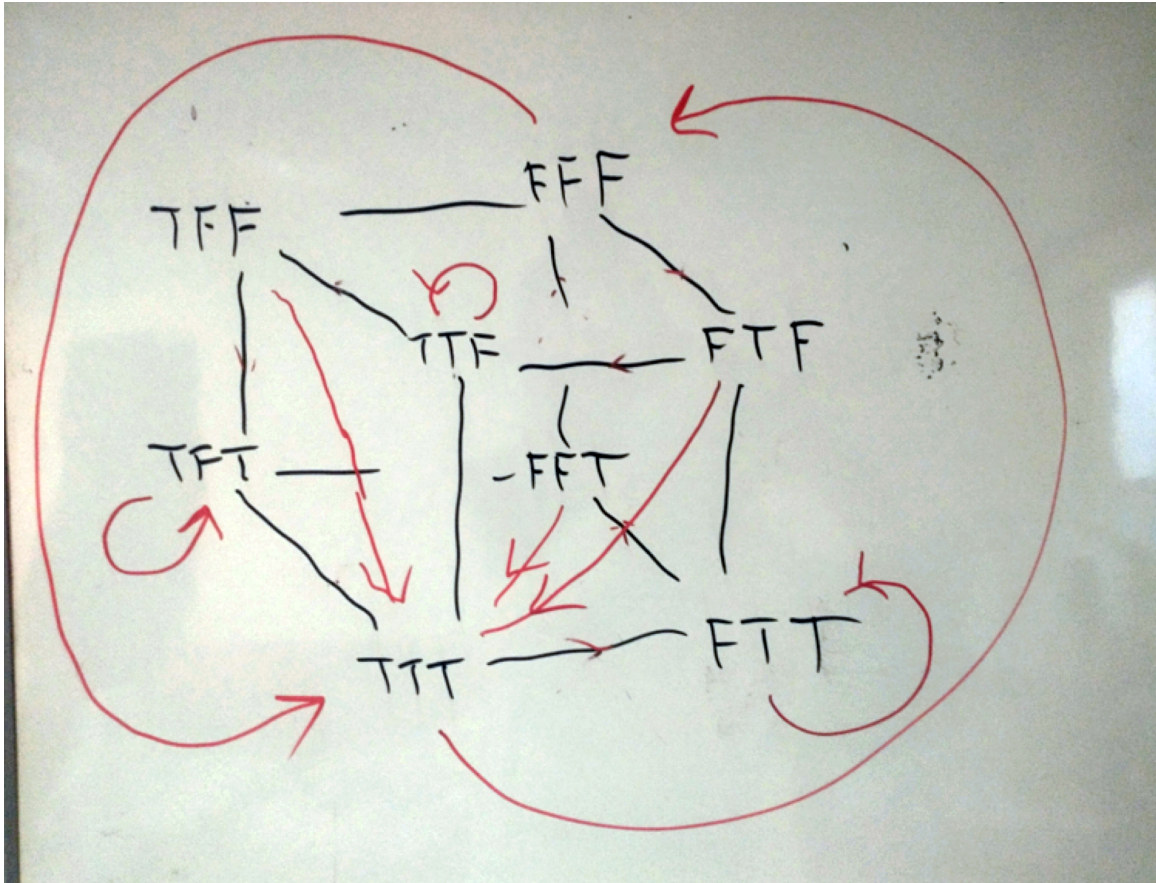 FFF
TFF
TTF
FTF
TFT
FFT
TTT
FTT